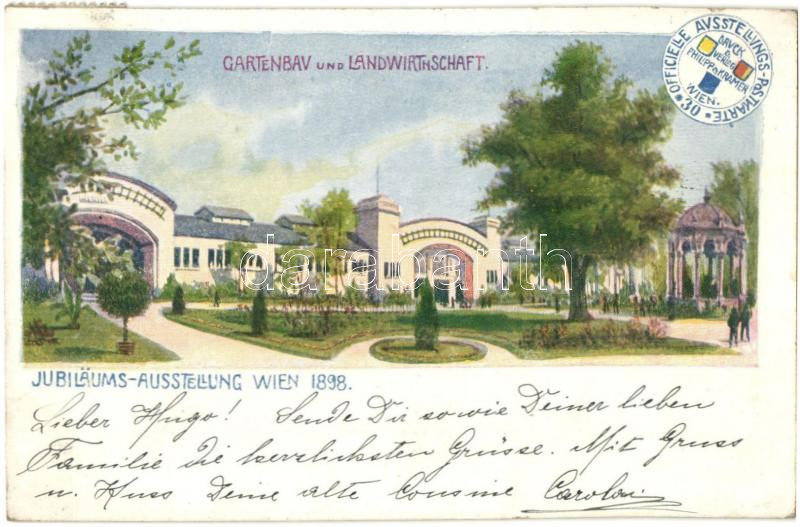 GARTENBAV UND LANDWIRTHSCHAFT.
OFFICIELLE AVSSTELLUNGS-POSTKARTE
*30*
DRVCK
&
VERLAG
PHILIPP & KRAMER
WIEN.
darabanth
JUBILÄUMS-AUSSTELLUNG WIEN 1898.
Lieber Hugo! Sende Dir sowie Deiner lieben
Familie die herzlichsten Grüsse. Mit Gruss
u. Kuss Deine alte Cousine